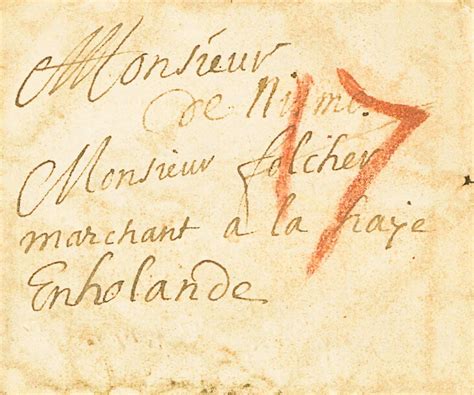 Monsieur
de Nisme.
Monsieur folcher
marchant a la haye
Enholande
17